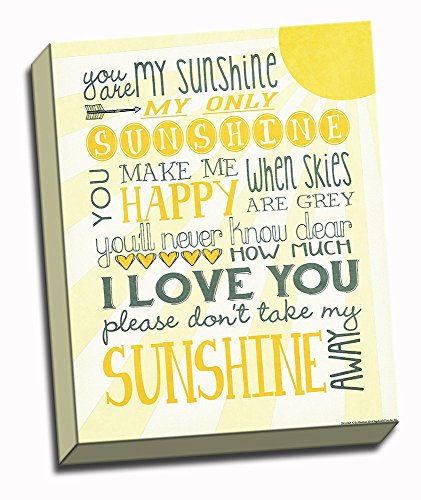 you are MY SUNSHINE
MY ONLY
SUNSHINE
YOU MAKE ME
HAPPY
when skies
ARE GREY
you'll never know dear
HOW MUCH
I LOVE YOU
please don't take my
SUNSHINE
AWAY